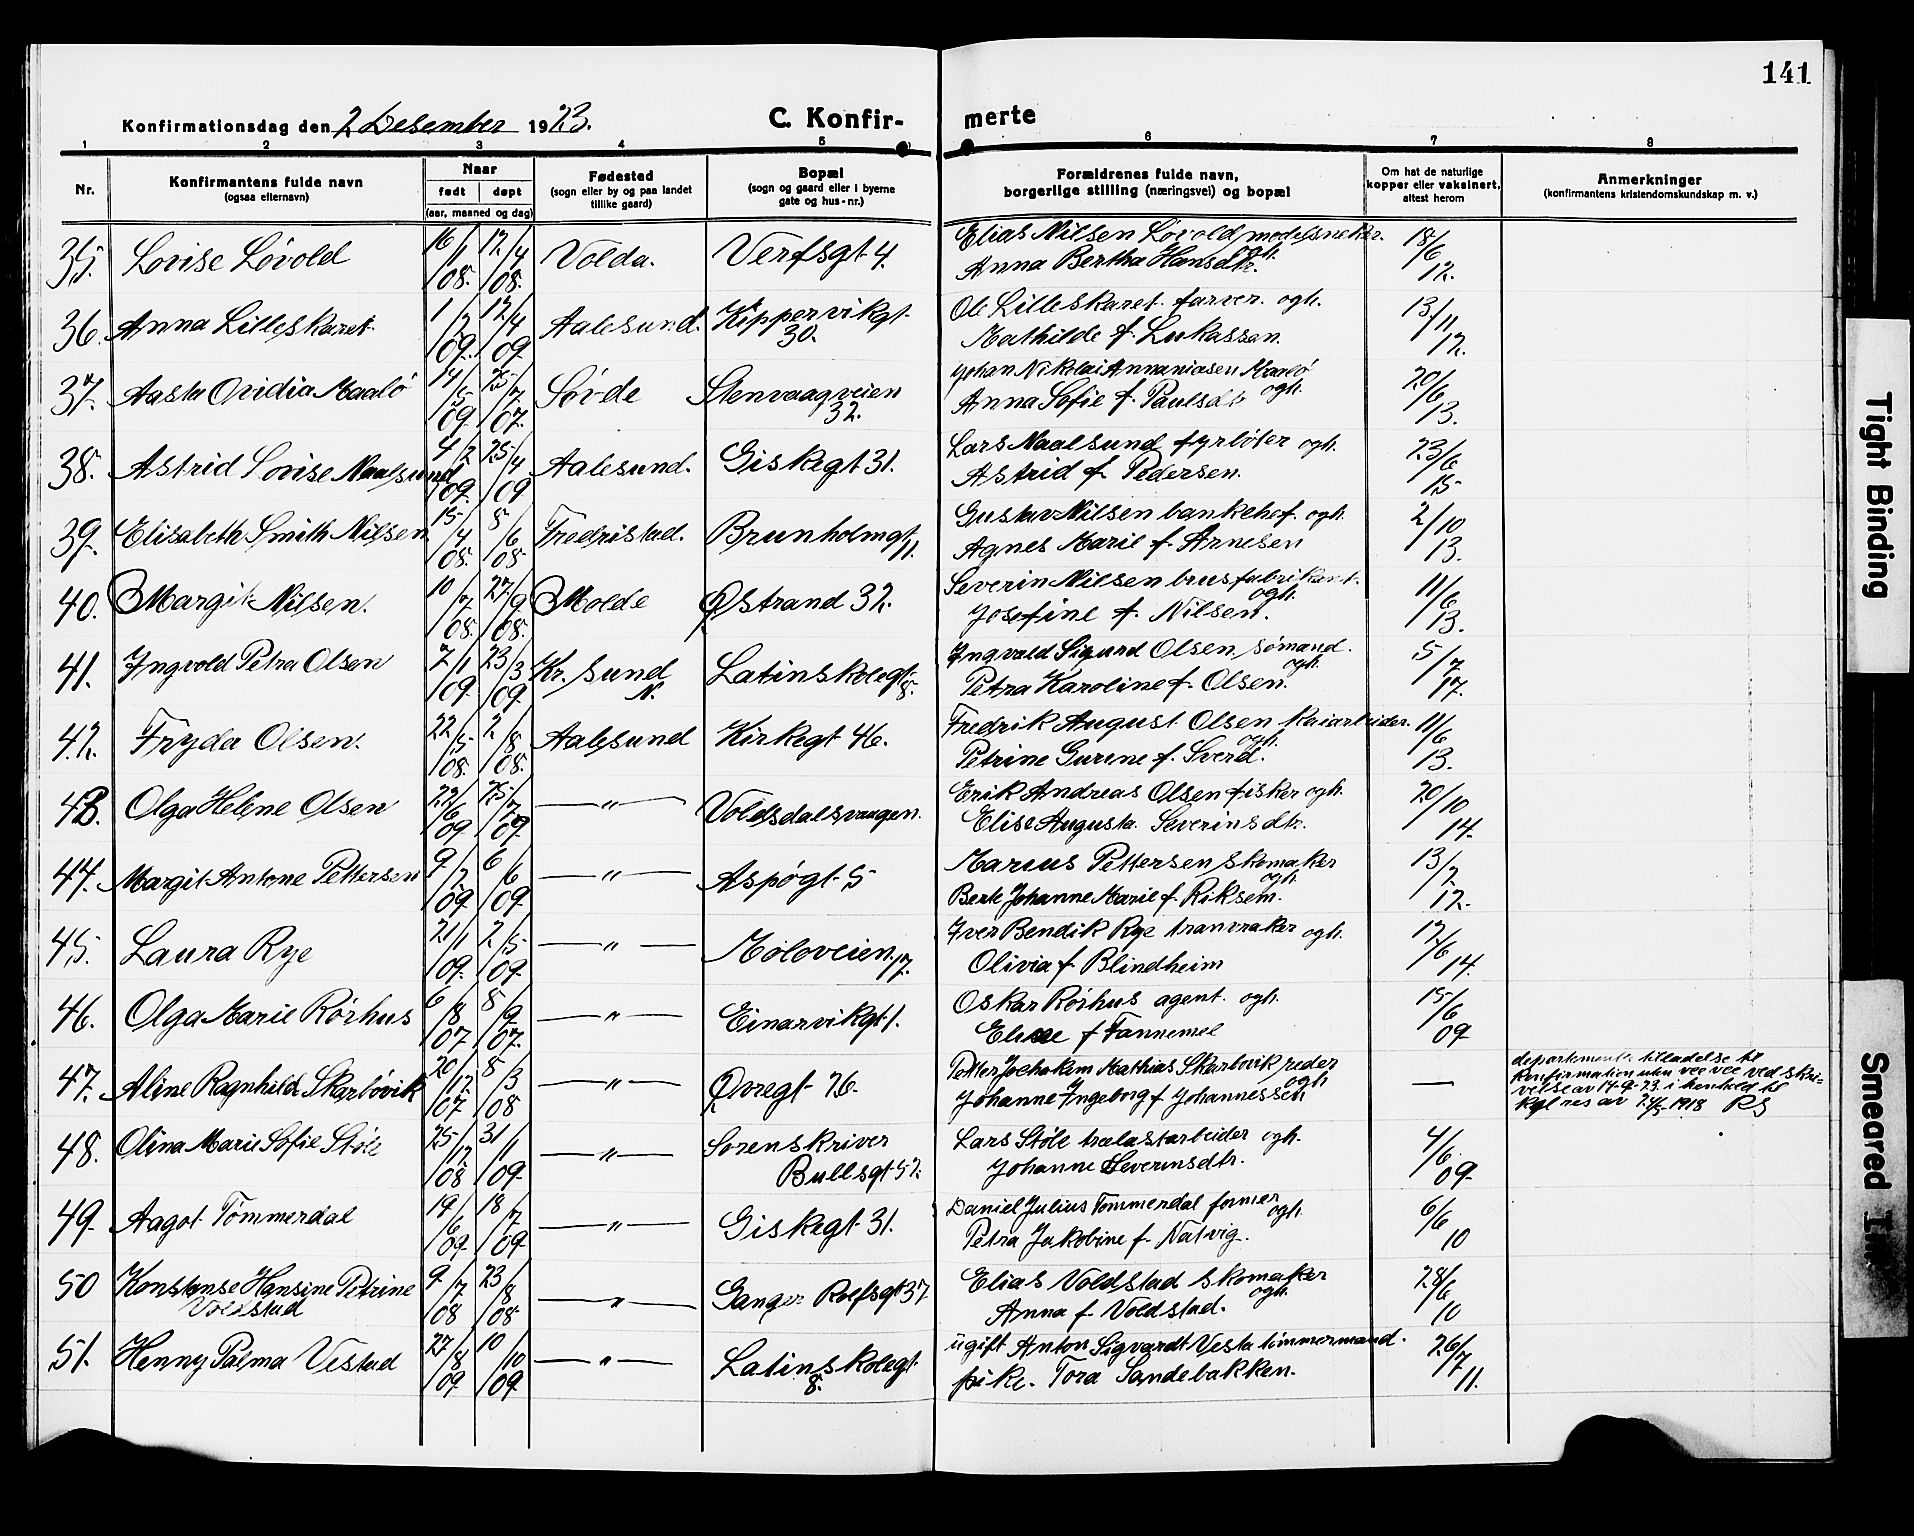 141
Konfirmationsdag den 2 Desember 1923.
C. Konfir-
merte
1 2 3 4 5 6 7 8
Nr.
Konfirmantens fulde navn
(ogsaa efternavn)
Naar
født døpt
(aar, maaned og dag)
Fødested
(sogn eller by og paa landet
tillike gaard)
Bopæl
(sogn og gaard eller i byerne
gate og hus-nr.)
Forældrenes fulde navn,
borgerlige stilling (næringsvei) og bopæl
Om hat de naturlige
kopper eller vaksinert,
attest herom
Anmerkninger
(konfirmantens kristendomskundskap m. v.)
35. Lovise Løvold 16/1/08. 12/4/08. Volda. Verfsgt 4. Elias Nilsen Løvold modelsneker. ogh. 18/6/12.
Anna Bertha Hansdtr.
36. Anna Lilleskaret. 1/2/09. 12/4/09. Aalesund. Kippervikgt 30. Ole Lilleskaret. farver. ogh. 13/11/12.
Mathilde f. Lukassen.
37. Aasta Ovidia Maalö 14/5/09. 25/7/07. Søvde Stenvaagveien 32. Johan Nikolai Annaniasen Maalö ogh. 20/6/13.
Anna Sofie f. Paulsdtr
38. Astrid Lovise Naalsund 4/2/09. 25/4/09 Aalesund. Giskegt 31. Lars Naalsund fyrbøter ogh. 23/6/15
Astrid f. Pedersen.
39. Elisabeth Smith Nilsen 15/4/08. 8/6/08 Fredristad. Brunholmgt 11. Gustav Nilsen bankchef. ogh. 2/10/13.
Agnes Marie f. Arnesen
40. Margit Nilsen. 10/7/08. 27/9/08. Molde Østrand 32. Severin Nilsen brusfabrikant. ogh. 11/6/13.
Josefine f. Nilsen.
41. Ingvold Petra Olsen 2/1/09. 23/3/09. Kr. sund N. Latinskolegt 8. Ingvald Sigurd Olsen sømand. ogh. 5/7/17.
Petra Karoline f. Olsen.
42. Fryda Olsen. 22/5/08. 2/8/08. Aalesund Kirkegt 46. Fredrik August Olsen kaiarbeider. ogh. 11/6/13.
Petrine Gurine f. Sverd.
43. Olga Helene Olsen 22/6/09 25/7/09. —"— Voldsdalsvaagen. Erik Andreas Olsen fisker ogh. 20/10/14.
Elise Augusta Severinsdtr.
44. Margit Antone Pettersen 9/2/09 6/6/09. —"— Aspøgt 5 Marius Pettersen skomaker ogh. 13/7/12.
Berte Johanne Marie f. Riksem.
45. Laura Rye 21/1/09. 2/5/09. —"— Moloveien 17. Iver Bendik Rye tranvraker ogh. 12/6/14.
Olivia f. Blindheim
46. Olga Marie Rørhus 6/8/07 8/9/07. —"— Einarvikgt 1. Oskar Rørhus agent. ogh. 15/6/09.
f Fannemel
47. Aline Ragnhild Skarbövik 20/12/07 8/3/08 —"— Øvregt 26. Petter Joehakim Mathias Skarbövik reder ogh —
Johanne Ingeborg f Johannessen
departements tilladelse til
konfirmation uten
velse av 14-9-23 i henhold til
kgl res av 24/5-1918 RS
48. Olina Marie Sofie Støle 25/12/08 31/1/09. —"— Sorenskriver Bullsgt 52. Lars Støle trælastarbeider ogh. 4/6/09.
Johanne Severinsdtr.
49. Aagot Tømmerdal 19/6/09. 18/7/09. —"— Giskegt 31. Daniel Julius Tømmerdal former ogh. 6/6/10
Petra Jakobine f. Natvig.
50 Konstanse Hansine Petrine Voldstad 9/7/08 23/8/08. —"— Ganger Rolfsgt 37. Elias Voldstad skomaker ogh. 28/6/10
Anna f. Voldstad.
51. Henny Palma Vestad 27/8/09. 10/10/09. —"— Latinskolegt 8. ugift Anton Sigvardt Vesta tømmermand. 26/7/11.
pike. Tora Sandebakken.
Tight Binding
Smeared Ink